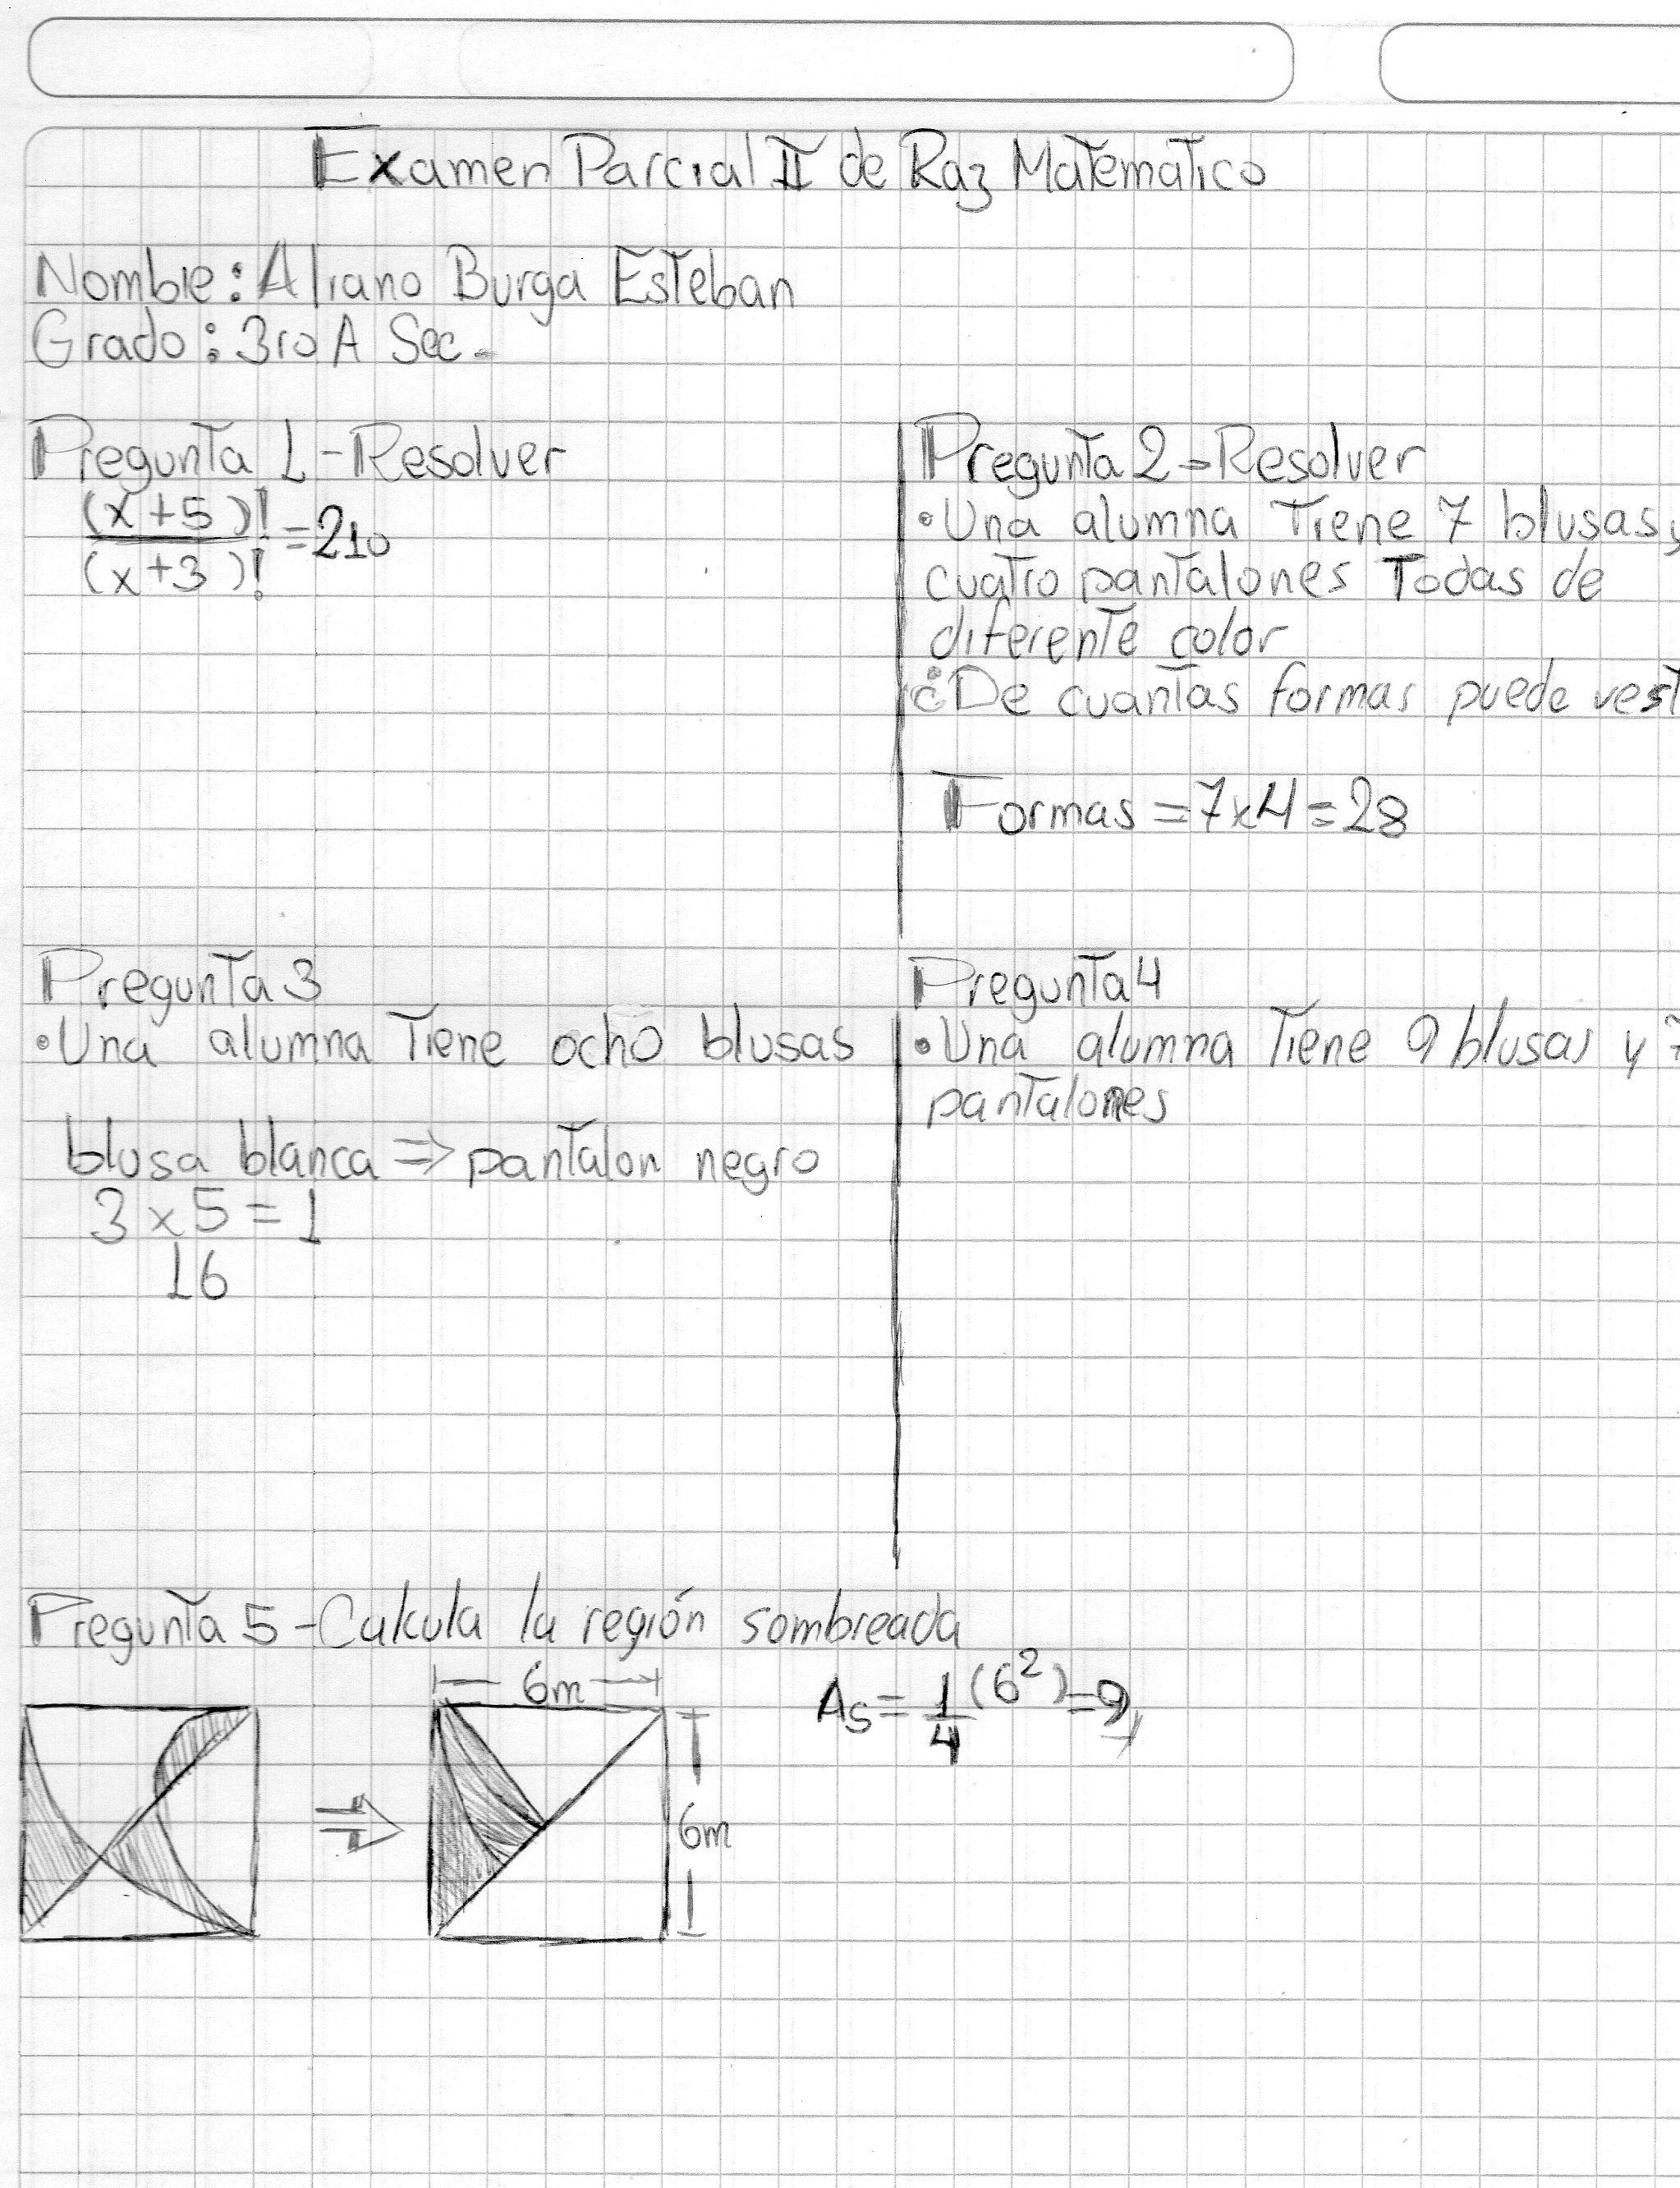 Examen Parcial II de Raz Matematico
Nombre: Aliano Burga Esteban
Grado: 3ro A Sec.
Pregunta 1-Resolver
(x+5)!
(x+3)!
=210
Pregunta 2-Resolver
•Una alumna Tiene 7 blusas y
cuatro pantalones Todas de
diferente color
¿De cuantas formas puede vest
Formas =7x4=28
Pregunta 3
•Una alumna Tiene ocho blusas
blusa blanca => pantalon negro
3 x 5 = 1
16
Pregunta 4
•Una alumna Tiene 9 blusas y 7
pantalones
Pregunta 5-Calcula la región sombreada
6m
6m
As= 1/4 (6²)=9